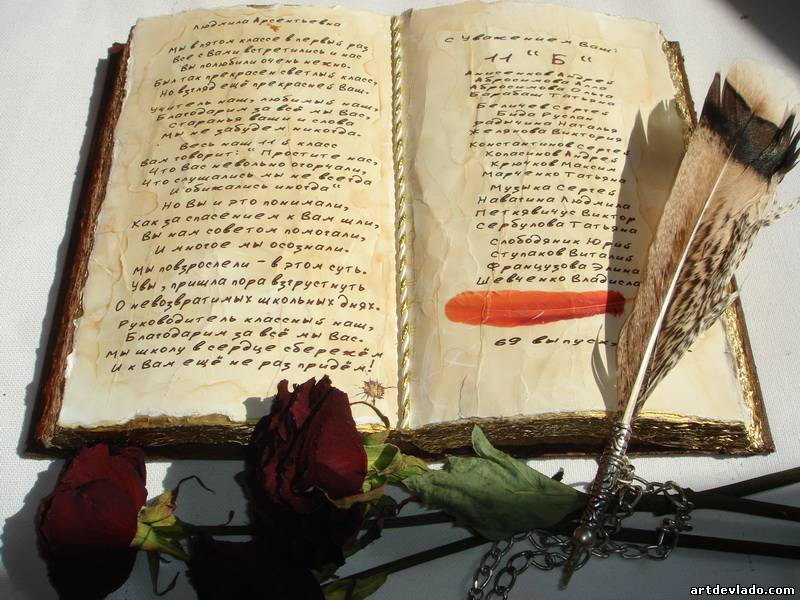 Людмила Арсентьевна
Мы в пятом классе в первый раз
Все с Вами встретились и нас
Вы полюбили очень нежно.
Был так прекрасен светлый класс,
Но взгляд ещё прекрасней Ваш.
Учитель наш, любимый наш,
Благодарим за всё мы Вас,
Старанья ваши и слова
Мы не забудем никогда.
Весь наш 11й класс
Вам говорит: "Простите нас,
Что Вас невольно огорчали,
Что слушались мы не всегда
И обижались иногда"
Но Вы и это понимали,
Как за спасением к Вам шли,
Вы нам советом помогали,
И многое мы осознали.
Мы повзрослели - в этом суть.
Увы, пришла пора взгрустнуть
О невозвратимых школьных днях.
Руководитель классный наш,
Благодарим за всё мы Вас.
Мы школу в сердце сбережём
И к Вам ещё не раз придём!
С Уважением Ваш:
11 "Б"
Анисенков Андрей
Абросимова Алла
Барабаш Татьяна
Беличев Сергей
Бида Руслан
Вадычина Наталья
Желянова Виктория
Константинов Сергей
Колосинов Андрей
Крючков Максим
Марченко Татьяна
Музыка Сергей
Навагина Людмила
Петкявичус Виктор
Сербулова Татьяна
Слободяник Юрий
Ступаков Виталий
Французова Элина
Шевченко Владисла
69 выпуск
artdevlado.com